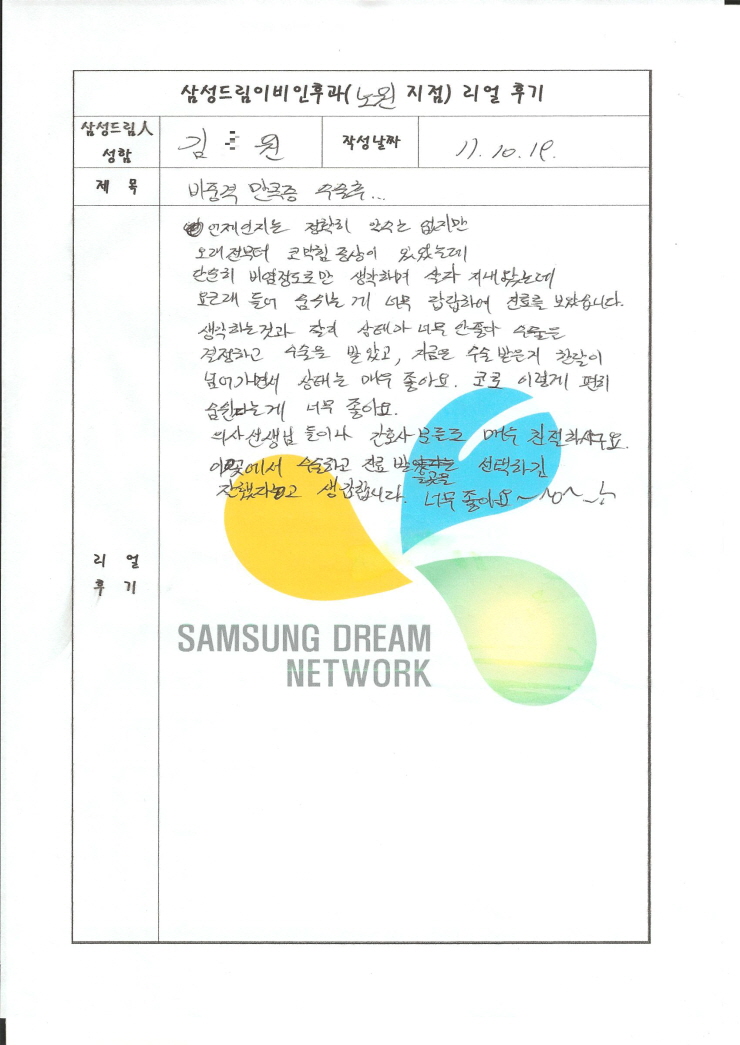 삼성드림이비인후과(노원 지점) 리얼 후기
삼성드림人 성함
김 원
작성날짜
11. 10. 19.
제 목
비중격 만곡증 수술후...
리 얼 후 기
언제인지는 정확히 알수는 없지만
오래전부터 코막힘 증상이 있었는데
단순히 비염정도로만 생각하며 살다 지내왔는데
요근래 들어 숨쉬는 게 너무 답답하여 진료를 보았습니다.
생각하는것과 달리 상태가 너무 안좋다 수술은
결정하고 수술을 받았고, 지금은 수술 받은지 한달이
넘어가면서 상태는 매우 좋아요. 코로 이렇게 편히
숨쉰다는게 너무 좋아요.
의사선생님 들이나 간호사 분들도 매우 친절하시구요.
이곳에서 수술하고 진료 받은 선택하길
잘했다고 생각합니다. 너무 좋아요~
SAMSUNG DREAM
NETWORK